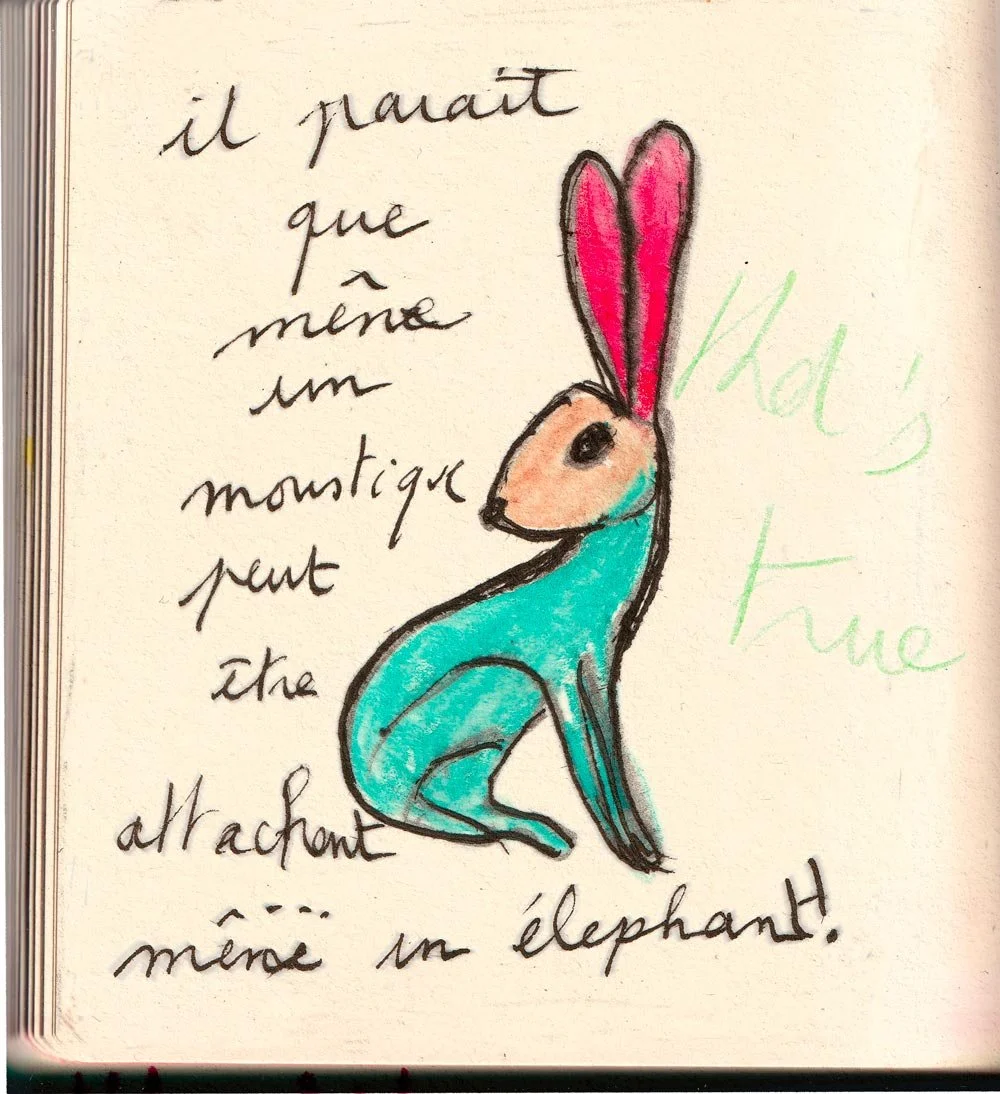 il parait
que
même
un
moustique
peut
être
attachant
même un élephant!.
that's
true